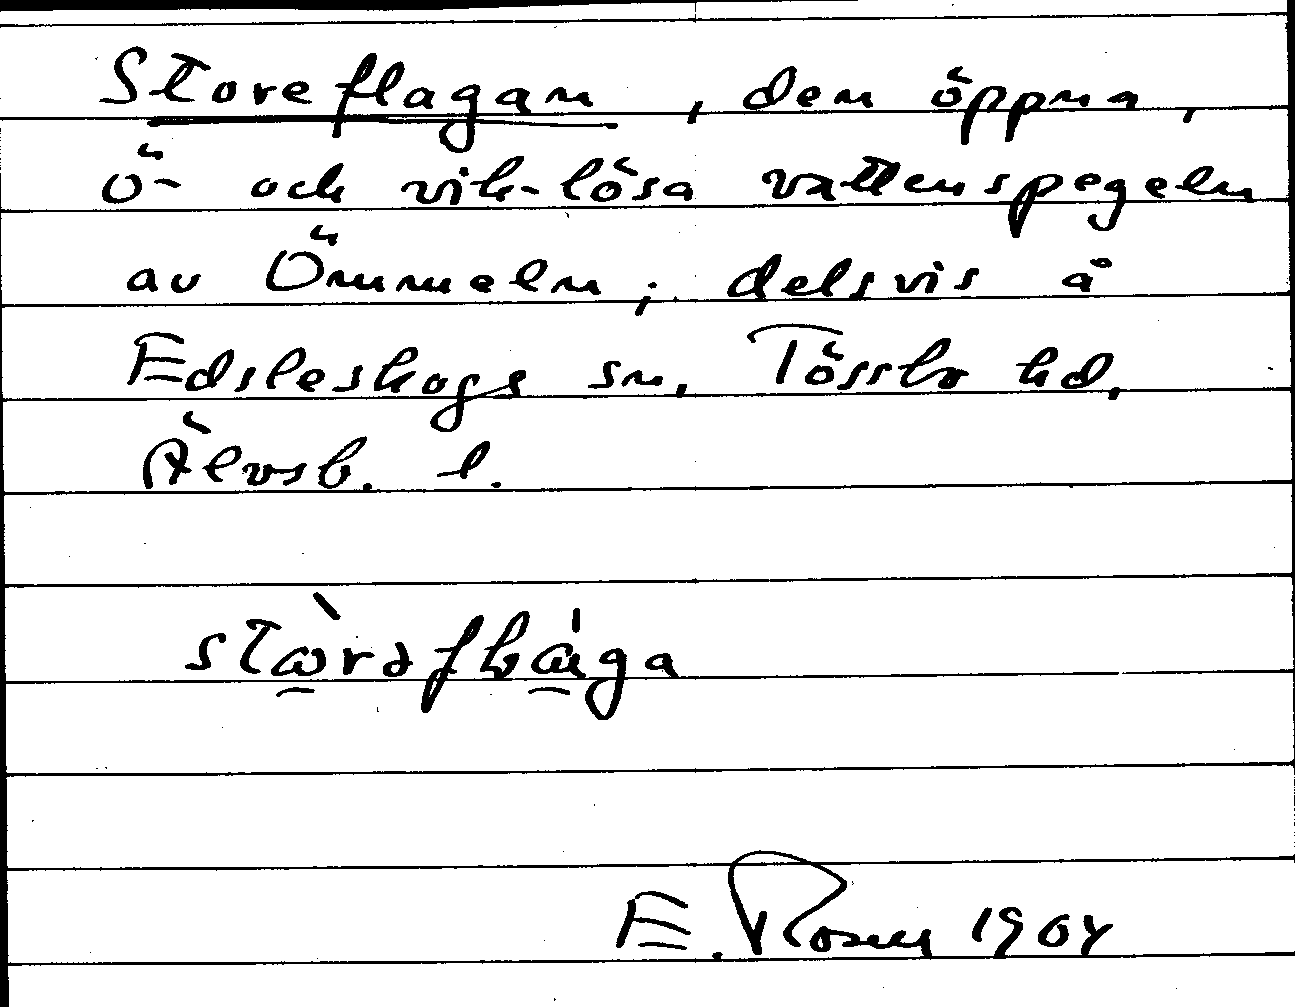 Storeflagan, den öppna,
ö- och vik-lösa vattenspegeln
av Ömmeln; delsvis å
Edsleskogs sn, Tössbo hd,
Älvsb. l.
E. Rosen 1904